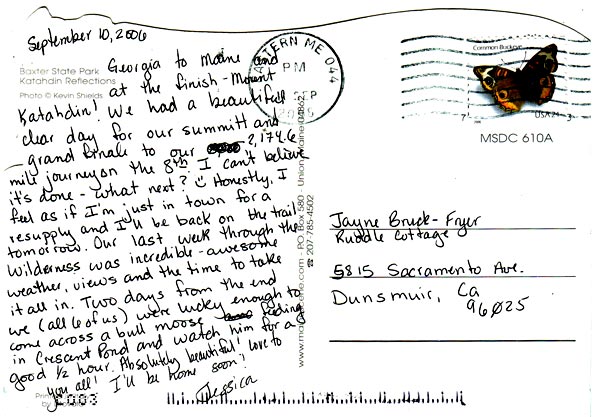 September 10, 2006
Georgia to Maine and
at the finish - Mount
Katahdin! We had a beautiful
clear day for our summit and
grand finale to our 2,174.6
mile journey on the 8th. I can't believe
it's done - what next? ☺ Honestly, I
feel as if I'm just in town for a
resupply and I'll be back on the trail
tomorrow. Our last week through the
Wilderness was incredible - awesome
weather, views and the time to take
it all in. Two days from the end
we (all 6 of us) were lucky enough to
come across a bull moose feeding
in Crescent Pond and watch him for a
good 1/2 hour. Absolutely beautiful! Love to
you all! I'll be home soon!
Jessica
Baxter State Park
Katahdin Reflections
Photo © Kevin Shields
EASTERN ME 044
PM
SEP
Common Buckeye
USA24
MSDC 610A
PO Box 580 - Union, Maine 04862
☎ 207-785-4502
Jayne Bruck-Fryer
Ruddle Cottage
5815 Sacramento Ave.
Dunsmuir, Ca
96025